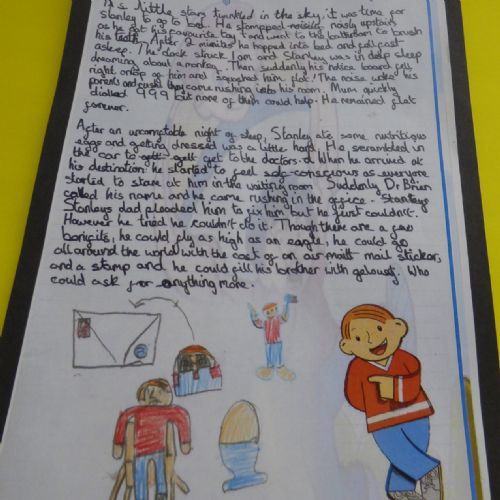 As little stars twinkled in the sky, it was time for
Stanley to go to bed. He stomped noisily upstairs
as he got his favourite toy and went to the bathroom to brush
his teeth. After 2 minutes he hopped into bed and fell fast
asleep. The clock struck 1 am and Stanley was in deep sleep
dreaming about a monkey. Then suddenly his notice board fell
right ontop of him and squashed him flat! The noise woke his
parents and they came rushing into his room. Mum quickly
dialled 999 but none of them could help. He remained flat
forever.
After an uncomfortable night of sleep, Stanley ate some nutritious
eggs and getting dressed was a little hard. He scrambled in
the car to get to the doctors. When he arrived at
his destination he started to feel self-conscious as everyone
started to stare at him in the waiting room. Suddenly Dr. Brien
called his name and he came rushing in the office. Stanleys
Stanleys dad pleaded him to fix him but he just couldn't.
However he tried he couldn't do it. Though there are a few
benifits, he could fly as high as an eagle, he could go
all around the world with the cost of an air mail stickers
and a stamp and he could fill his brother with gelousy. Who
could ask for anything more.